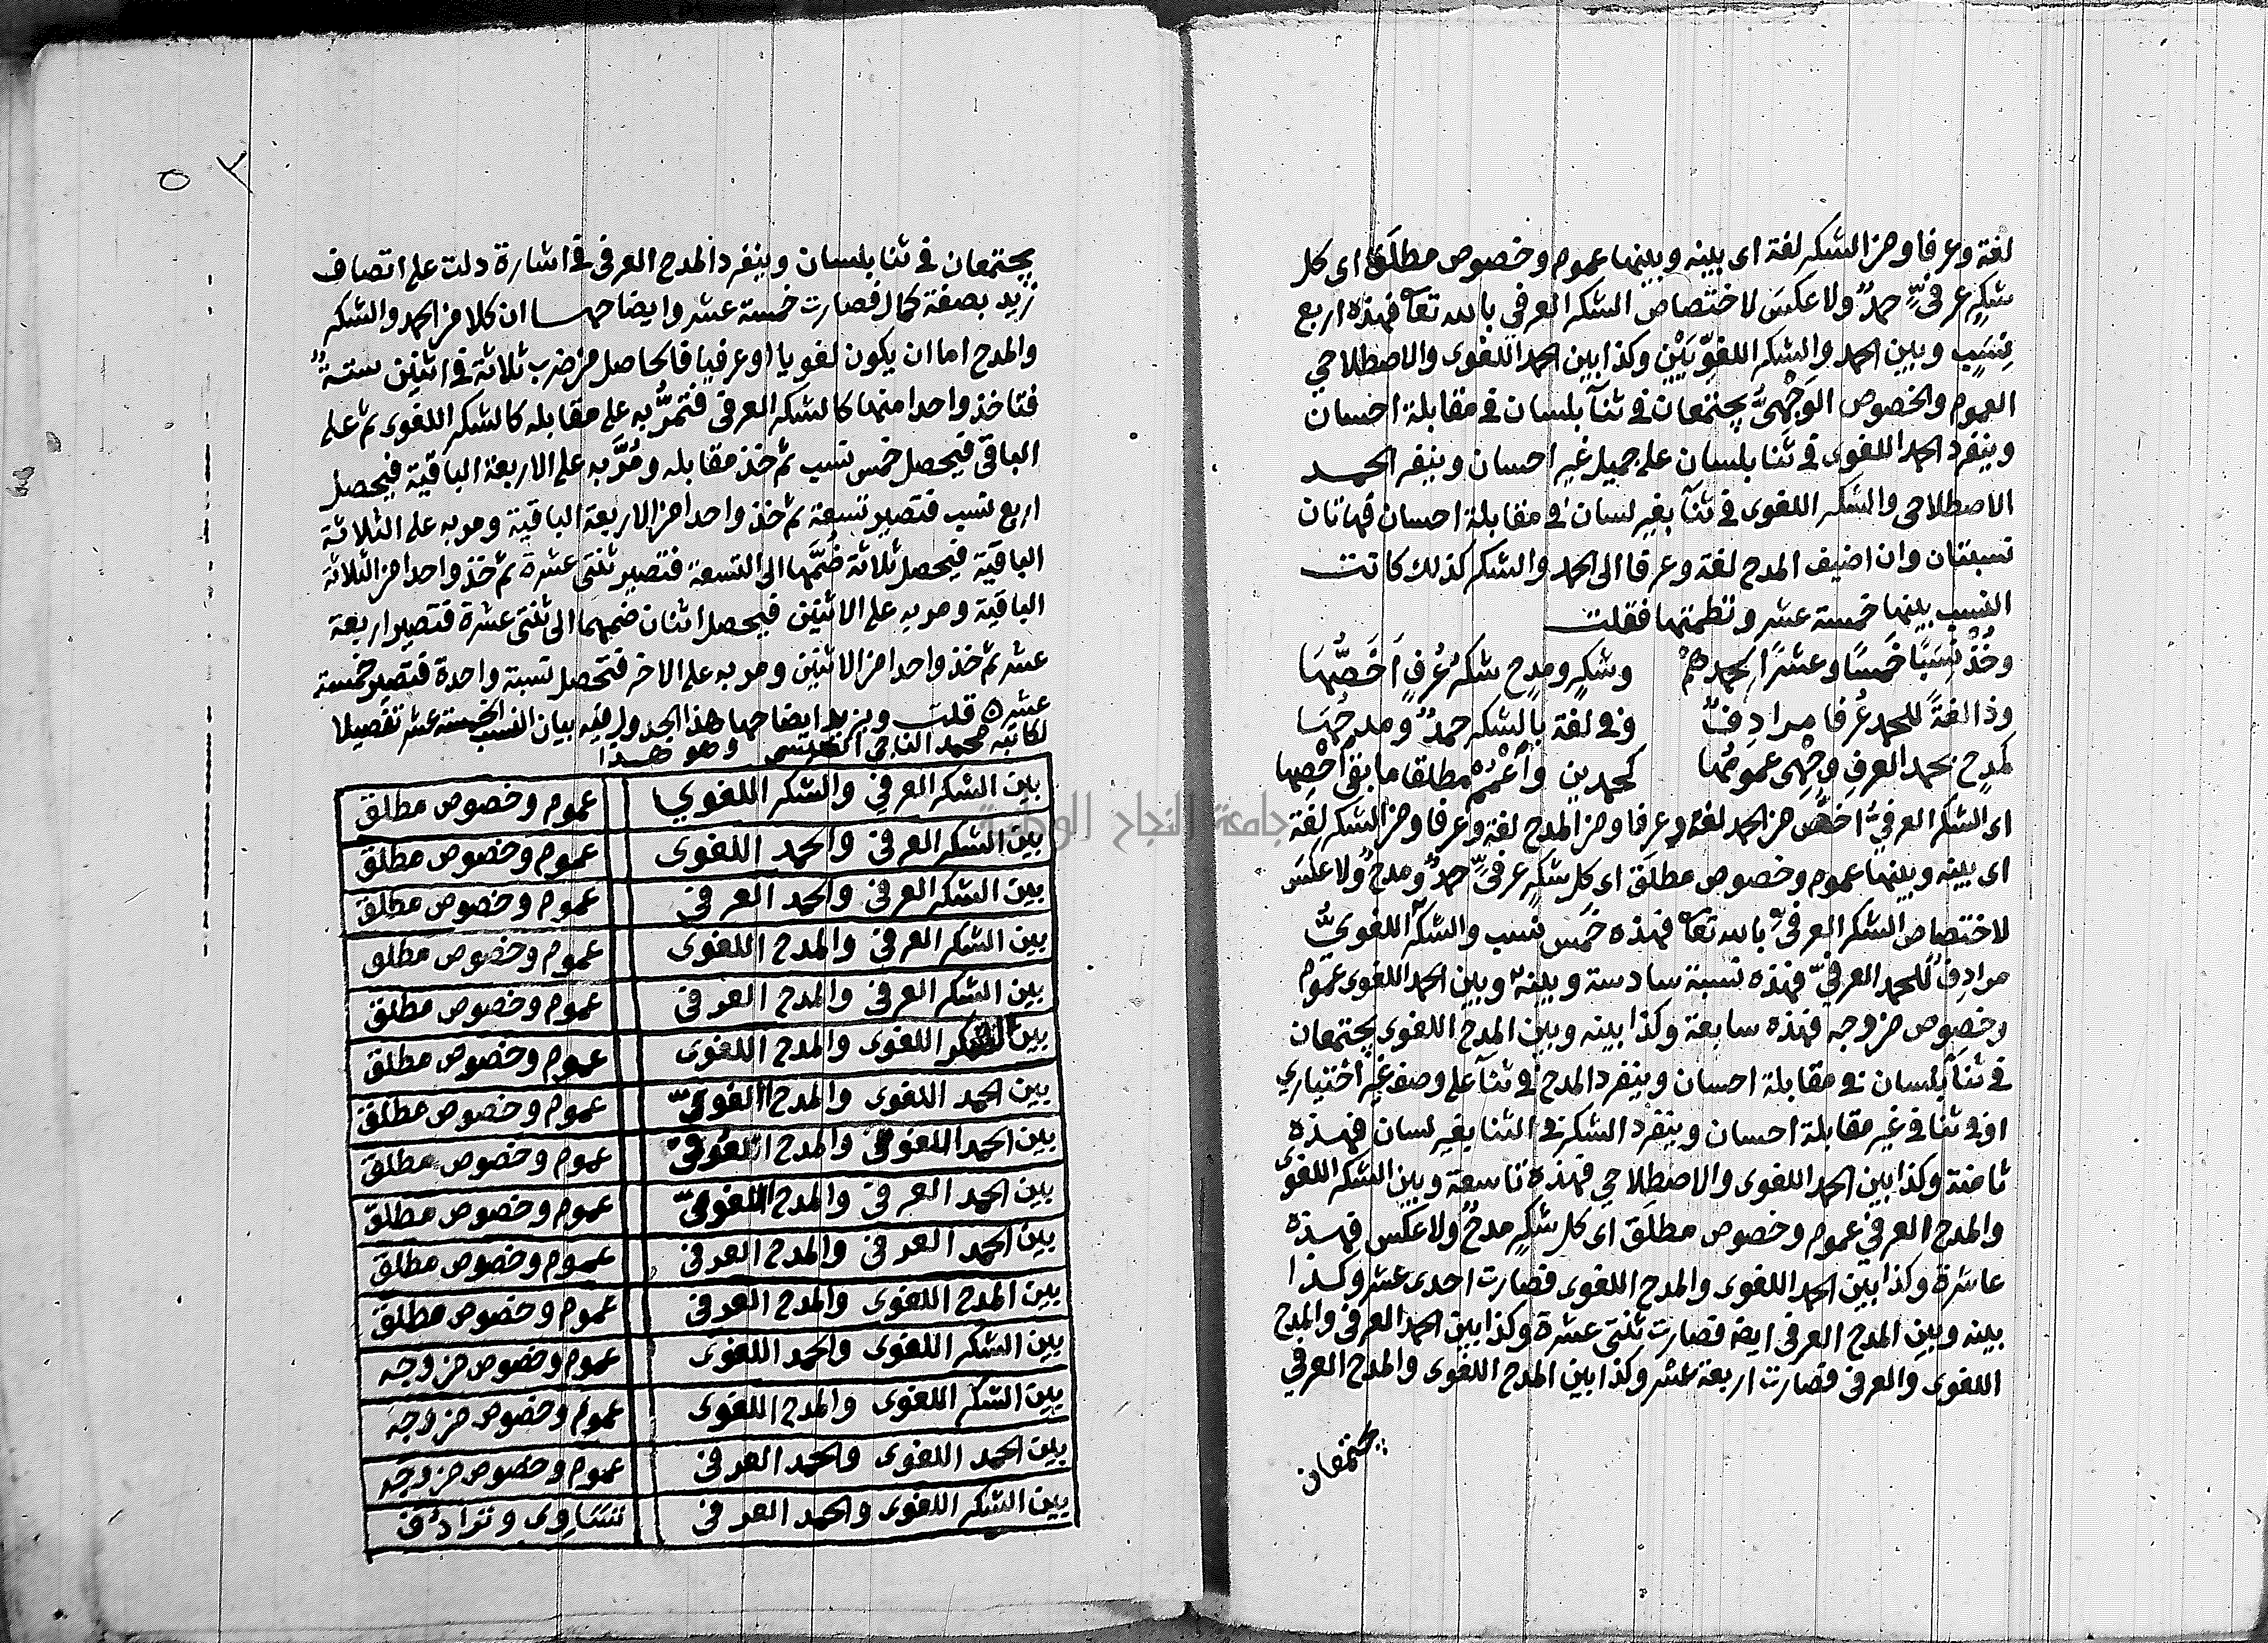 لغة وعرفا ومن الشكر لغة اى بينه وبينها عموم وخصوص مطلق اى كل
شكرٍ عرفىٍّ حمدٌ ولا عكسَ لاختصاص الشكر العرفي بالله تعا فهذه اربع
نِسَبٍ وبين الحمد والشكر اللغوِيَّيْنِ وكذا بين الحمد اللغوى والاصطلاحي
العموم والخصوص الوَجْهىُّ يجتمعان في ثنآ بلسان في مقابلة احسان
وينفرد الحمد اللغوى في ثنا بلسان على جميل غير احسان وينفر الحمد
الاصطلاحى والشكر اللغوى في ثنآ بغير لسان في مقابلة احسان فهاتان
نسبتان وان اضيف المدح لغة وعرفا الى الحمد والشكر كذلك كانت
النسب بينها خمسة عشر ونظمتها فقلت
وخُذْ نِسَبًا خَمسًا وعشرًا لحمدهم وشكرٍ ومدحٍ شكرُ عُرفٍ اَخَصُّهَا
وذا لغةً للحمد عُرفا مرادِفٌ وفي لغة بالشكر حمدٌ ومدحُهَا
كمدحٍ بحمد العرفِ وجْهى عمومُها كحمدين وأعْمُمْ مطلقا ما بقى أخصها
اى الشكر العرفيُّ اخصّ من الحمد لغة وعرفا ومن المدح لغة وعرفا ومن الشكر لغة
اى بينه وبينها عموم وخصوص مطلَق اى كل شكرٍ عرفىٍّ حمدٌ ومدحٌ ولا عكسَ
لاختصاص الشكر العرفى بالله تعا فهذه خمس نسب والشكر اللغوىُّ
مرادِفٌ للحمد العرفىّ فهذه نسبة سادسة وبينه وبين الحمد اللغوى عموم
وخصوص من وجه فهذه سابعة وكذا بينه وبين المدح اللغوى يجتمعان
في ثنآ بلسان في مقابلة احسان وينفرد المدح في ثنآ على وصف غير اختياري
او في ثنا في غير مقابلة احسان وينفرد الشكر في الثنا بغير لسان فهذه
ثامنة وكذا بين الحمد اللغوى والاصطلاحي فهذه تاسعة وبين الشكر اللغوى
والمدح العرفي عموم وخصوص مطلَق اى كل شكرٍ مدحٌ ولا عكس فهذه
عاشرة وكذا بين الحمد اللغوى والمدح اللغوى فصارت احدى عشر وكذا
بينه وبين المدح العرفى ايضه فصارت ثنتى عشرة وكذا بين الحمد العرفى والمدح
اللغوى والعرفى فصارت اربعة عشر وكذا بين المدح اللغوى والمدح العرفي
يجتمعان
يجتمعان في ثنا بلسان وينفرد المدح العرفى في اشارة دلت على اتصاف
زيد بصفة كمال فصارت خمسة عشر وايضاحهـا ان كلا من الحمد والشكر
والمدح اما ان يكون لغويا او عرفيا فالحاصل من ضرب ثلاثة في اثنين ستةٌ
فتاخذ واحدا منها كالشكر العرفى فتمرُّ به على مقابله كالشكر اللغوى ثم على
الباقى فيحصل خمس نسب ثم خذ مقابله ومُرَّ به على الاربعة الباقية فيحصل
اربع نسب فتصير تسعة ثم خذ واحدا من الاربعة الباقية ومر به على الثلاثة
الباقية فيحصل ثلاثة ضُمَّها الى التسعة فتصير ثنتى عشرة ثم خذ واحدا من الثلاثة
الباقية ومر به على الاثنين فيحصل اثنان ضمهما الى ثنتى عشرة فتصير اربعة
عشر ثم خذ واحدا من الاثنين ومر به على الاخر فتحصل نسبة واحدة فتصير خمسة
عشره قلت ويزيد ايضاحها هذا الجدول فيه بيان النسب الخمسة عشر تفصيلا
لكاتبه محمد الناجى وهو هـذا
بين الشكر العرفي والشكر اللغوي عموم وخصوص مطلق
بين الشكر العرفى والحمد اللغوى عموم وخصوص مطلق
بين الشكر العرفى والحمد العرفي عموم وخصوص مطلق
بين الشكر العرفى والمدح اللغوى عموم وخصوص مطلق
بين الشكر العرفى والمدح العرفى عموم وخصوص مطلق
بين الشكر اللغوى والمدح اللغوى عموم وخصوص مطلق
بين الحمد اللغوى والمدح عموم وخصوص مطلق
بين الحمد والمدح عموم وخصوص مطلق
بين الحمد العرفى والمدح عموم وخصوص مطلق
بين الحمد العرفى والمدح العرفى عموم وخصوص مطلق
بين المدح اللغوى والمدح العرفى عموم وخصوص مطلق
بين الشكر اللغوى والحمد اللغوى عموم وخصوص من وجه
بين الشكر اللغوى والمدح اللغوى عموم وخصوص من وجه
بين الحمد اللغوى والحمد العرفى عموم وخصوص من وجه
بين الشكر اللغوى والحمد العرفى تساوى وترادف
جامعة النجاح الوطنية